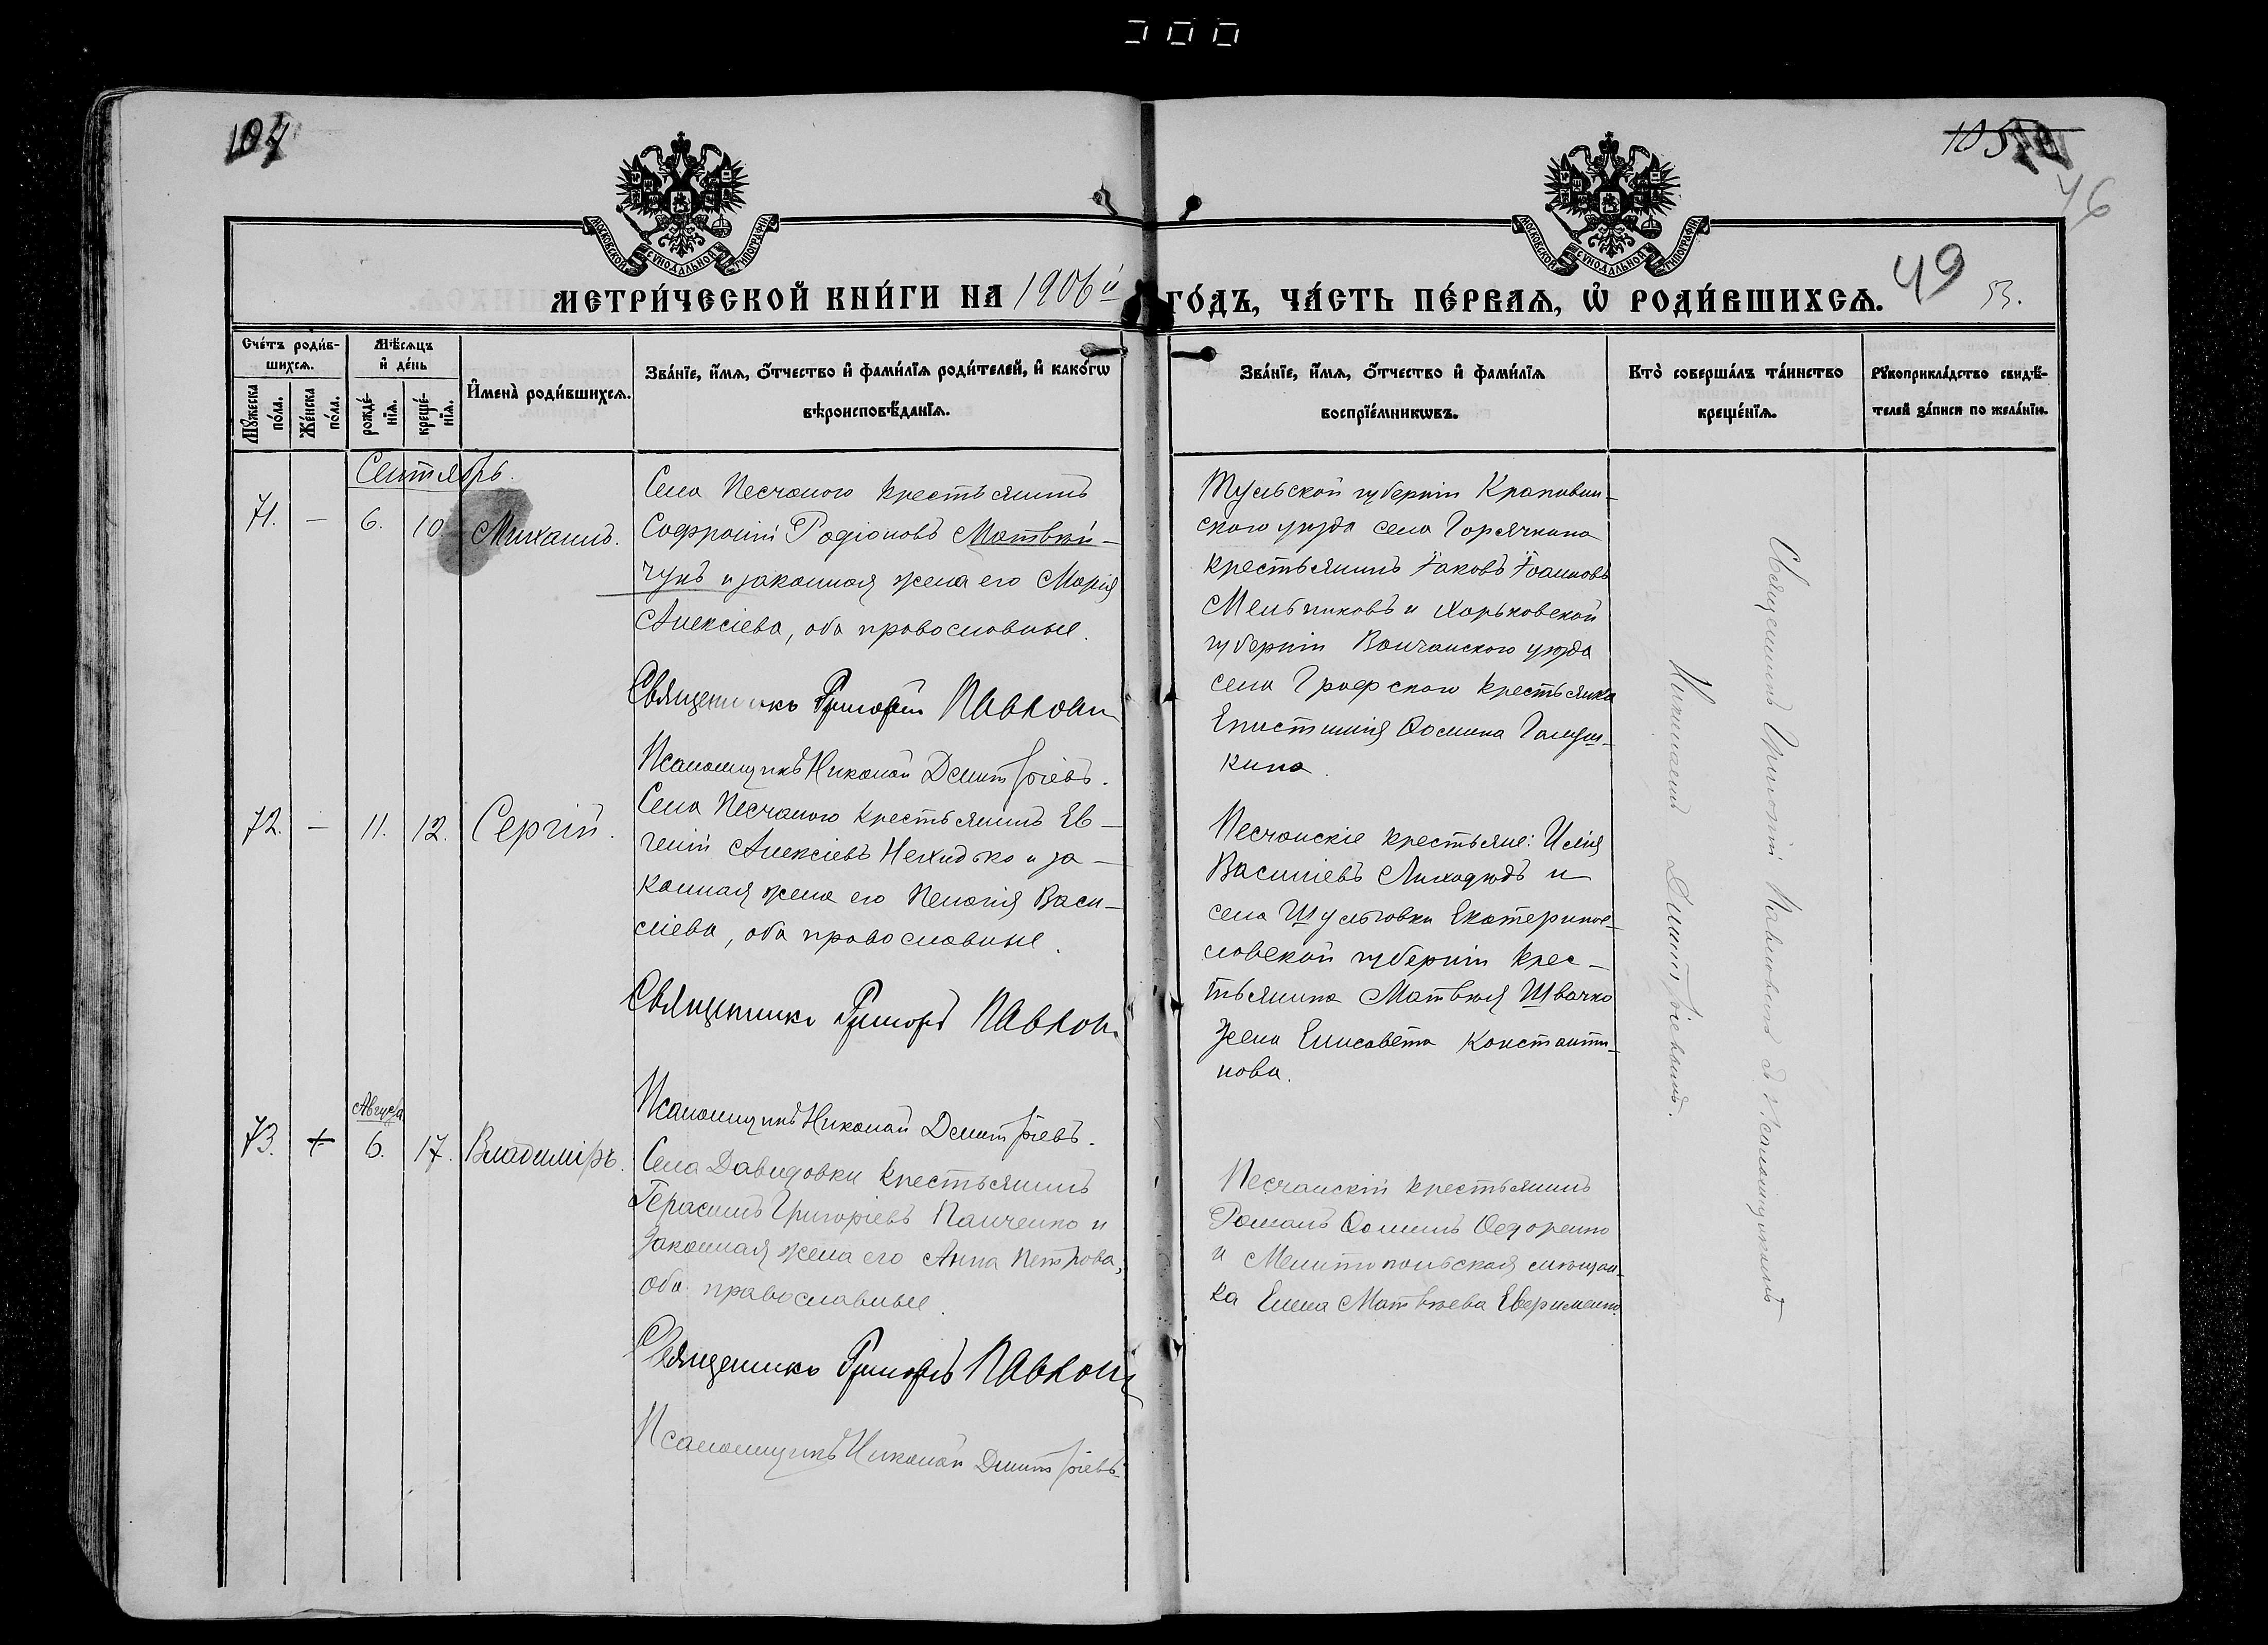 107
105
46
МОСКОВСКОЙ СУНОДАЛЬНОЙ ТИПОГРАФІИ
МОСКОВСКОЙ СУНОДАЛЬНОЙ ТИПОГРАФІИ
МЕТРИ́ЧЕСКОЙ КНИ́ГИ НА 1906й ГО́ДЪ, ЧА́СТЬ ПЕ́РВАѦ, Ѡ҆ РОДИ́ВШИХСѦ. 49 53.
Сче́тъ роди́в-
шихсѧ.
Мѣ́сѧцъ
и҆ де́нь
Мꙋ́жеска по́ла.
Же́нска по́ла.
рожде́-
нїѧ.
креще́-
нїѧ.
И҆мена̀ роди́вшихсѧ.
Зва́нїе, и҆́мѧ, ѻ҆́тчество и҆ фами́лїѧ роди́телей, и҆ како́гѡ
вѣроисповѣ́данїѧ.
Зва́нїе, и҆́мѧ, ѻ҆́тчество и҆ фами́лїѧ
воспрїе́мникѡвъ.
Кто̀ соверша́лъ та́инство
креще́нїѧ.
Рꙋкоприкла́дство свидѣ́-
телей за́писи по жела́нїю.
Сентябрь.
71. — 6. 10 Михаилъ.
Села Песчаного крестьянинъ
Софроній Родіоновъ Матвѣй-
чукъ и законная жена его Марія
Алексіева, оба православные.
Священникъ Григорій Павлов
Псаломщикъ Николай Дмитріевъ.
Тульской губерніи Крапивен-
ского уѣзда села Горячкина
крестьянинъ Іаковъ Іоанновъ
Мельниковъ и Харьковской
губерніи Волчанского уѣзда
села Графского крестьянка
Епистимія Ѳомина Галуш-
кина.
72. — 11. 12. Сергій.
Села Песчаного крестьянинъ Ев-
геній Алексіевъ Нехидько и за-
конная жена его Пелагія Васи-
ліева, оба православные.
Священникъ Григорій Павлов
Псаломщикъ Николай Дмитріевъ.
Песчанскіе крестьяне: Илія
Василіевъ Лиходѣдъ и
села Шульговки Екатерино-
славской губерніи крес-
тьянина Матвѣя Швачко
жена Елисавета Константи-
нова.
Августа
73. + 6. 17. Владиміръ.
Села Давидовки крестьянинъ
Герасимъ Григоріевъ Панченко и
законная жена его Анна Петрова,
оба православные.
Священникъ Григорій Павлов
Псаломщикъ Николай Дмитріевъ.
Песчанскій крестьянинъ
Романъ Ѳоминъ Ѳедоренко
и Мелитопольская мѣщан-
ка Елена Матвѣева
Священникъ Григорій Павловъ съ Псаломщикомъ
Николаемъ Дмитріевымъ.